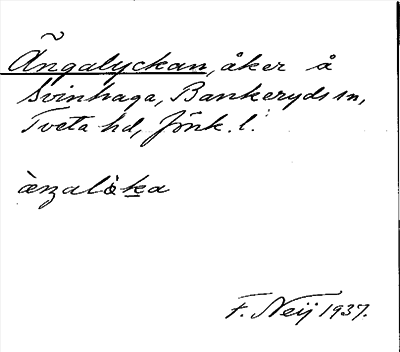 Ängalyckan, åker å
Svinhaga, Bankeryds sn,
Tveta hd, Jönk. l.
ànzalòka
F. Neij 1937.